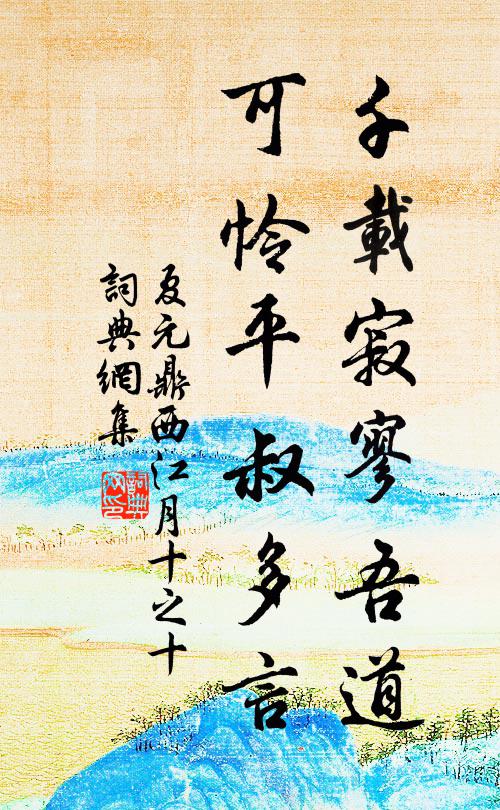 千載寂寥吾道
可怜平叔多言
夏元鼎西江月十之十
詞典網集
詞典
网印